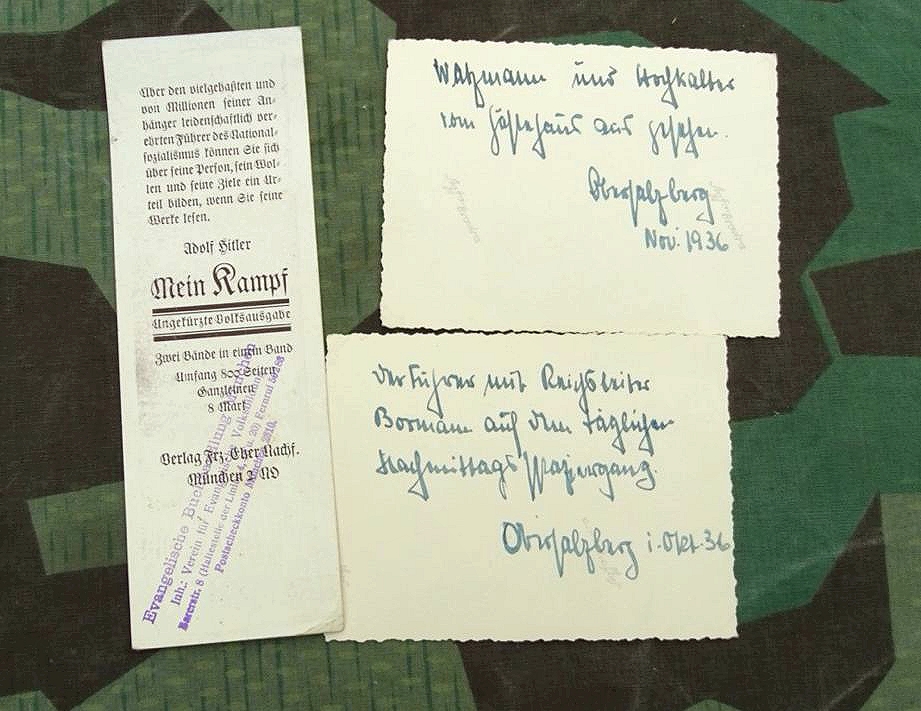 Über den vielgehaßten und
von Millionen seiner An-
hänger leidenschaftlich ver-
ehrten Führer des National-
sozialismus können Sie sich
über seine Person, sein Wol-
len und seine Ziele ein Ur-
teil bilden, wenn Sie seine
Werke lesen.
Adolf Hitler
Mein Kampf
Ungekürzte Volksausgabe
Zwei Bände in einem Band
Umfang 800 Seiten
Ganzleinen
8 Mark
Verlag Frz. Eher Nachf.
München 2 NO
Evangelische Buchhandlung München
Inh.: Verein für Evangelische
Barerstr. 8 (Haltestelle der Linien 4, u. 20) Fernruf
Postscheckkonto München
Watzmann und Hochkalter
vom Gästehaus aus gesehen.
Obersalzberg
Nov. 1936
Der Führer mit Reichsleiter
Bormann auf dem täglichen
Nachmittagsspaziergang.
Obersalzberg i. Okt. 36